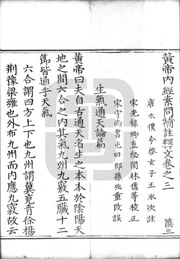 黃帝內經素問補註釋文卷之三
啓玄子王冰次註
宋光祿卿直秘閣林億等校正
宋守尚書屯田郎孫兆重改誤
生氣通天論篇
黃帝曰夫自古通天者生之本本於陰陽天
地之間六合之內其氣九州九竅五臟十二
節皆通乎天氣
六合謂四方上下也九州謂冀兗青徐楊
荊豫梁雍也外布九州而內應九竅故云